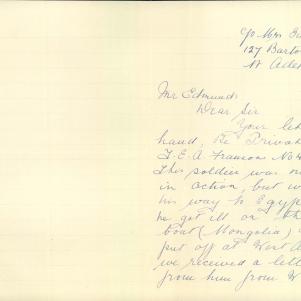 C/o Mrs
127 Barto
Nt Adel
Mr Edmunds
Dear Sir
Your let
hand, Re Privat
F.E.A. No
This soldier was no
in action, but w
his way to Egyp
he got ill on th
boat (Mongolia)
put off at West A
we received a lett
from him from W